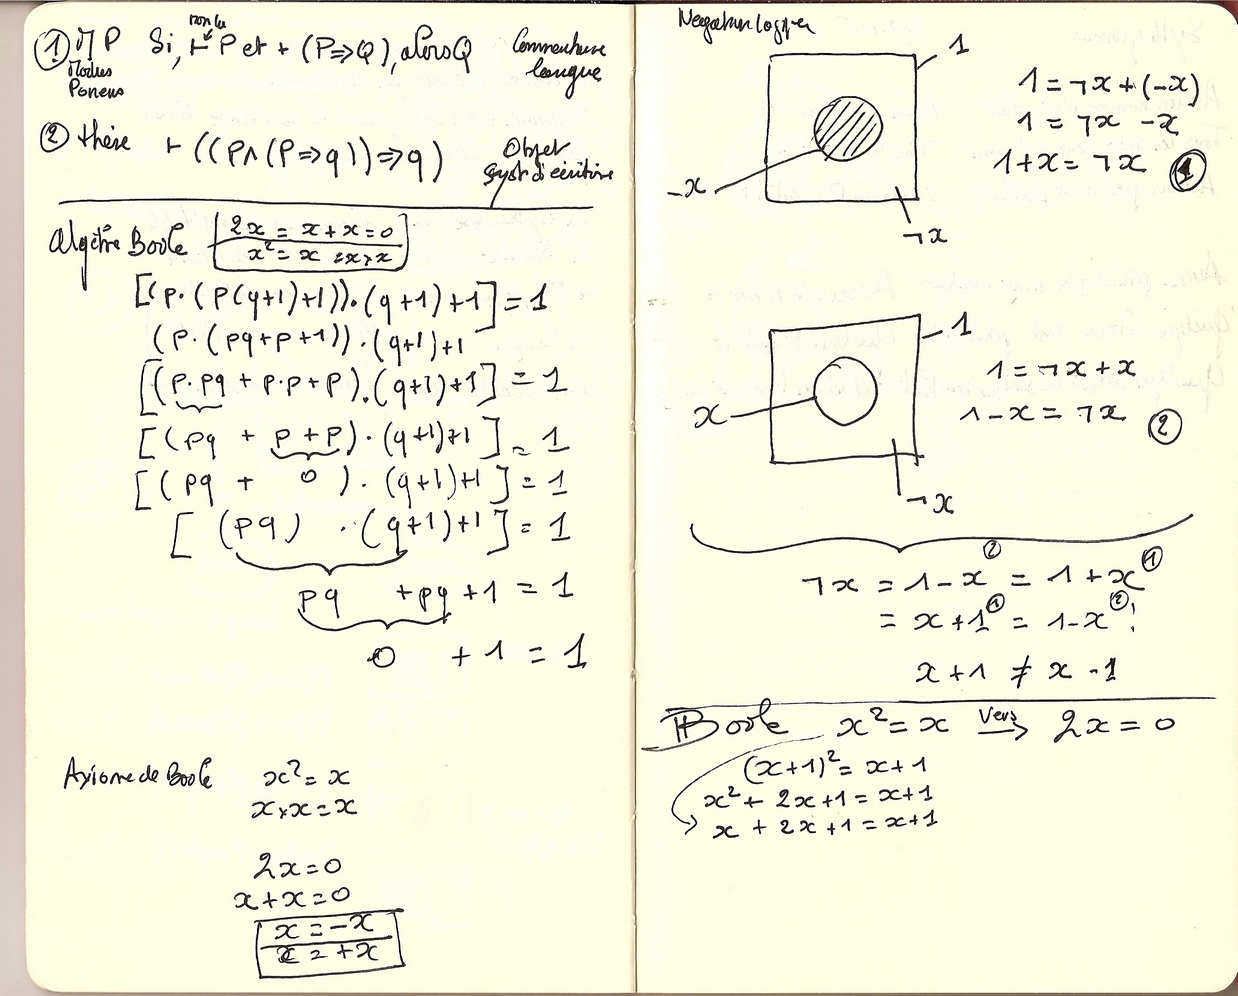 ① MP Si, ⊢ P et ⊢ (P⇒Q), alors Q
non lu
Modus
Ponens
Commentaire
langue
② thèse ⊢ ((p∧(p⇒q))⇒q)
Objet
syst d'écriture
Algèbre Boole
2x = x+x=0
x²= x = x×x
[(p·(p(q+1)+1))·(q+1)+1]=1
(p·(pq+p+1))·(q+1)+1
[(p·pq + p·p+p)·(q+1)+1] = 1
[(pq + p+p)·(q+1)+1] = 1
[(pq + 0)·(q+1)+1] = 1
[(pq)·(q+1)+1] = 1
pq +pq +1 = 1
0 +1 = 1
Axiome de Boole x²= x
x×x=x
2x=0
x+x=0
x = -x
x = +x
Negation logique
1
1 = ¬x+(-x)
1 = ¬x -x
1+x= ¬x ①
-x
¬x
1
1= ¬x+x
1-x = ¬x ②
x
¬x
¬x = 1-x② = 1+x①
= x+1① = 1-x②!
x+1 ≠ x -1
Boole x²=x Vers → 2x = 0
(x+1)²= x+1
x²+ 2x+1= x+1
x + 2x+1 = x+1